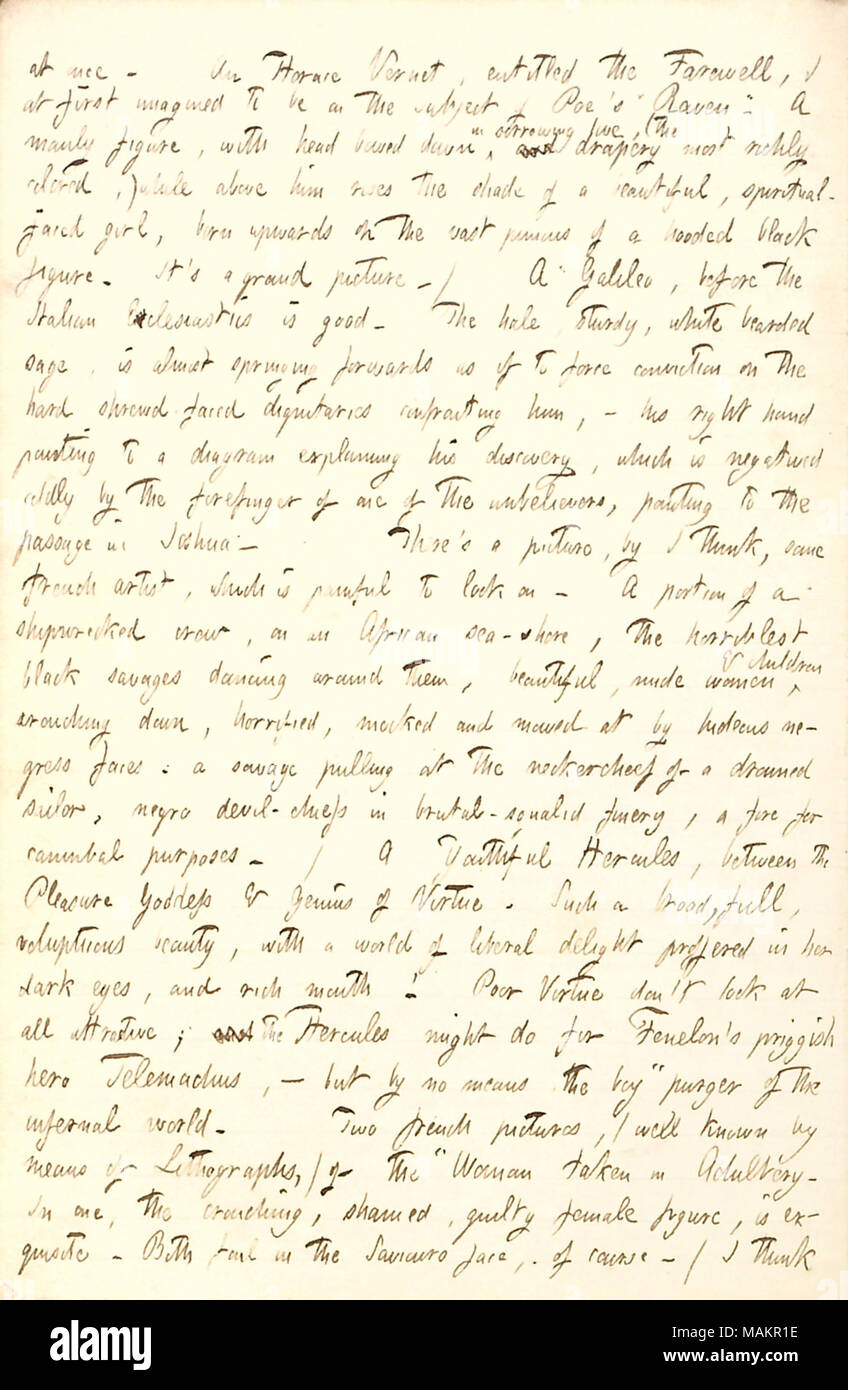 at once - An Horace Vernet, entitled the Farewell, I
at first imagined to be on the subject of Poe's "Raven". A
manly figure, with head bowed down in sorrowing love, (the drapery most richly
colored,) while above him rises the shade of a beautiful, spiritual-
faced girl, born upwards on the vast pinions of a hooded black
figure. It's a grand picture. / A Galileo, before the
Italian Ecclesiastics is good. The hale, sturdy, white bearded
sage, is almost springing forwards as if to force conviction on the
hard shrewd-faced dignitaries confronting him, - his right hand
pointing to a diagram explaining his discovery, which is negatived
coldly by the forefinger of one of the unbelievers, pointing to the
passage in Joshua - There's a picture, by I think, some
french artist, which is painful to look on - A portion of a
shipwrecked crew, on an African sea-shore, the horriblest
black savages dancing around them, beautiful, nude women, & children
crouching down, horrified, mocked and mowed at by hideous ne-
gress faces: a savage pulling at the neckercheef of a drowned
sailor, negro devil-chiefs in brutal-squalid finery, a fire for
cannibal purposes. / A Youthful Hercules, between the
Pleasure Goddess & Genius of Virtue. Such a broad, full,
voluptuous beauty, with a world of liberal delight proffered in her
dark eyes, and rich mouth! Poor Virtue don't look at
all attractive; the Hercules might do for Fenelon's priggish
hero Telemachus, - but by no means the boy "purger of the
infernal world. Two french pictures, (well known by
means of Lithographs,) of the "Woman taken in Adultery.
In one, the crouching, shamed, guilty female figure, is ex-
quisite - Both fail in the Saviours face, of course - / I think
alamy
Image ID: MAKR1E
www.alamy.com